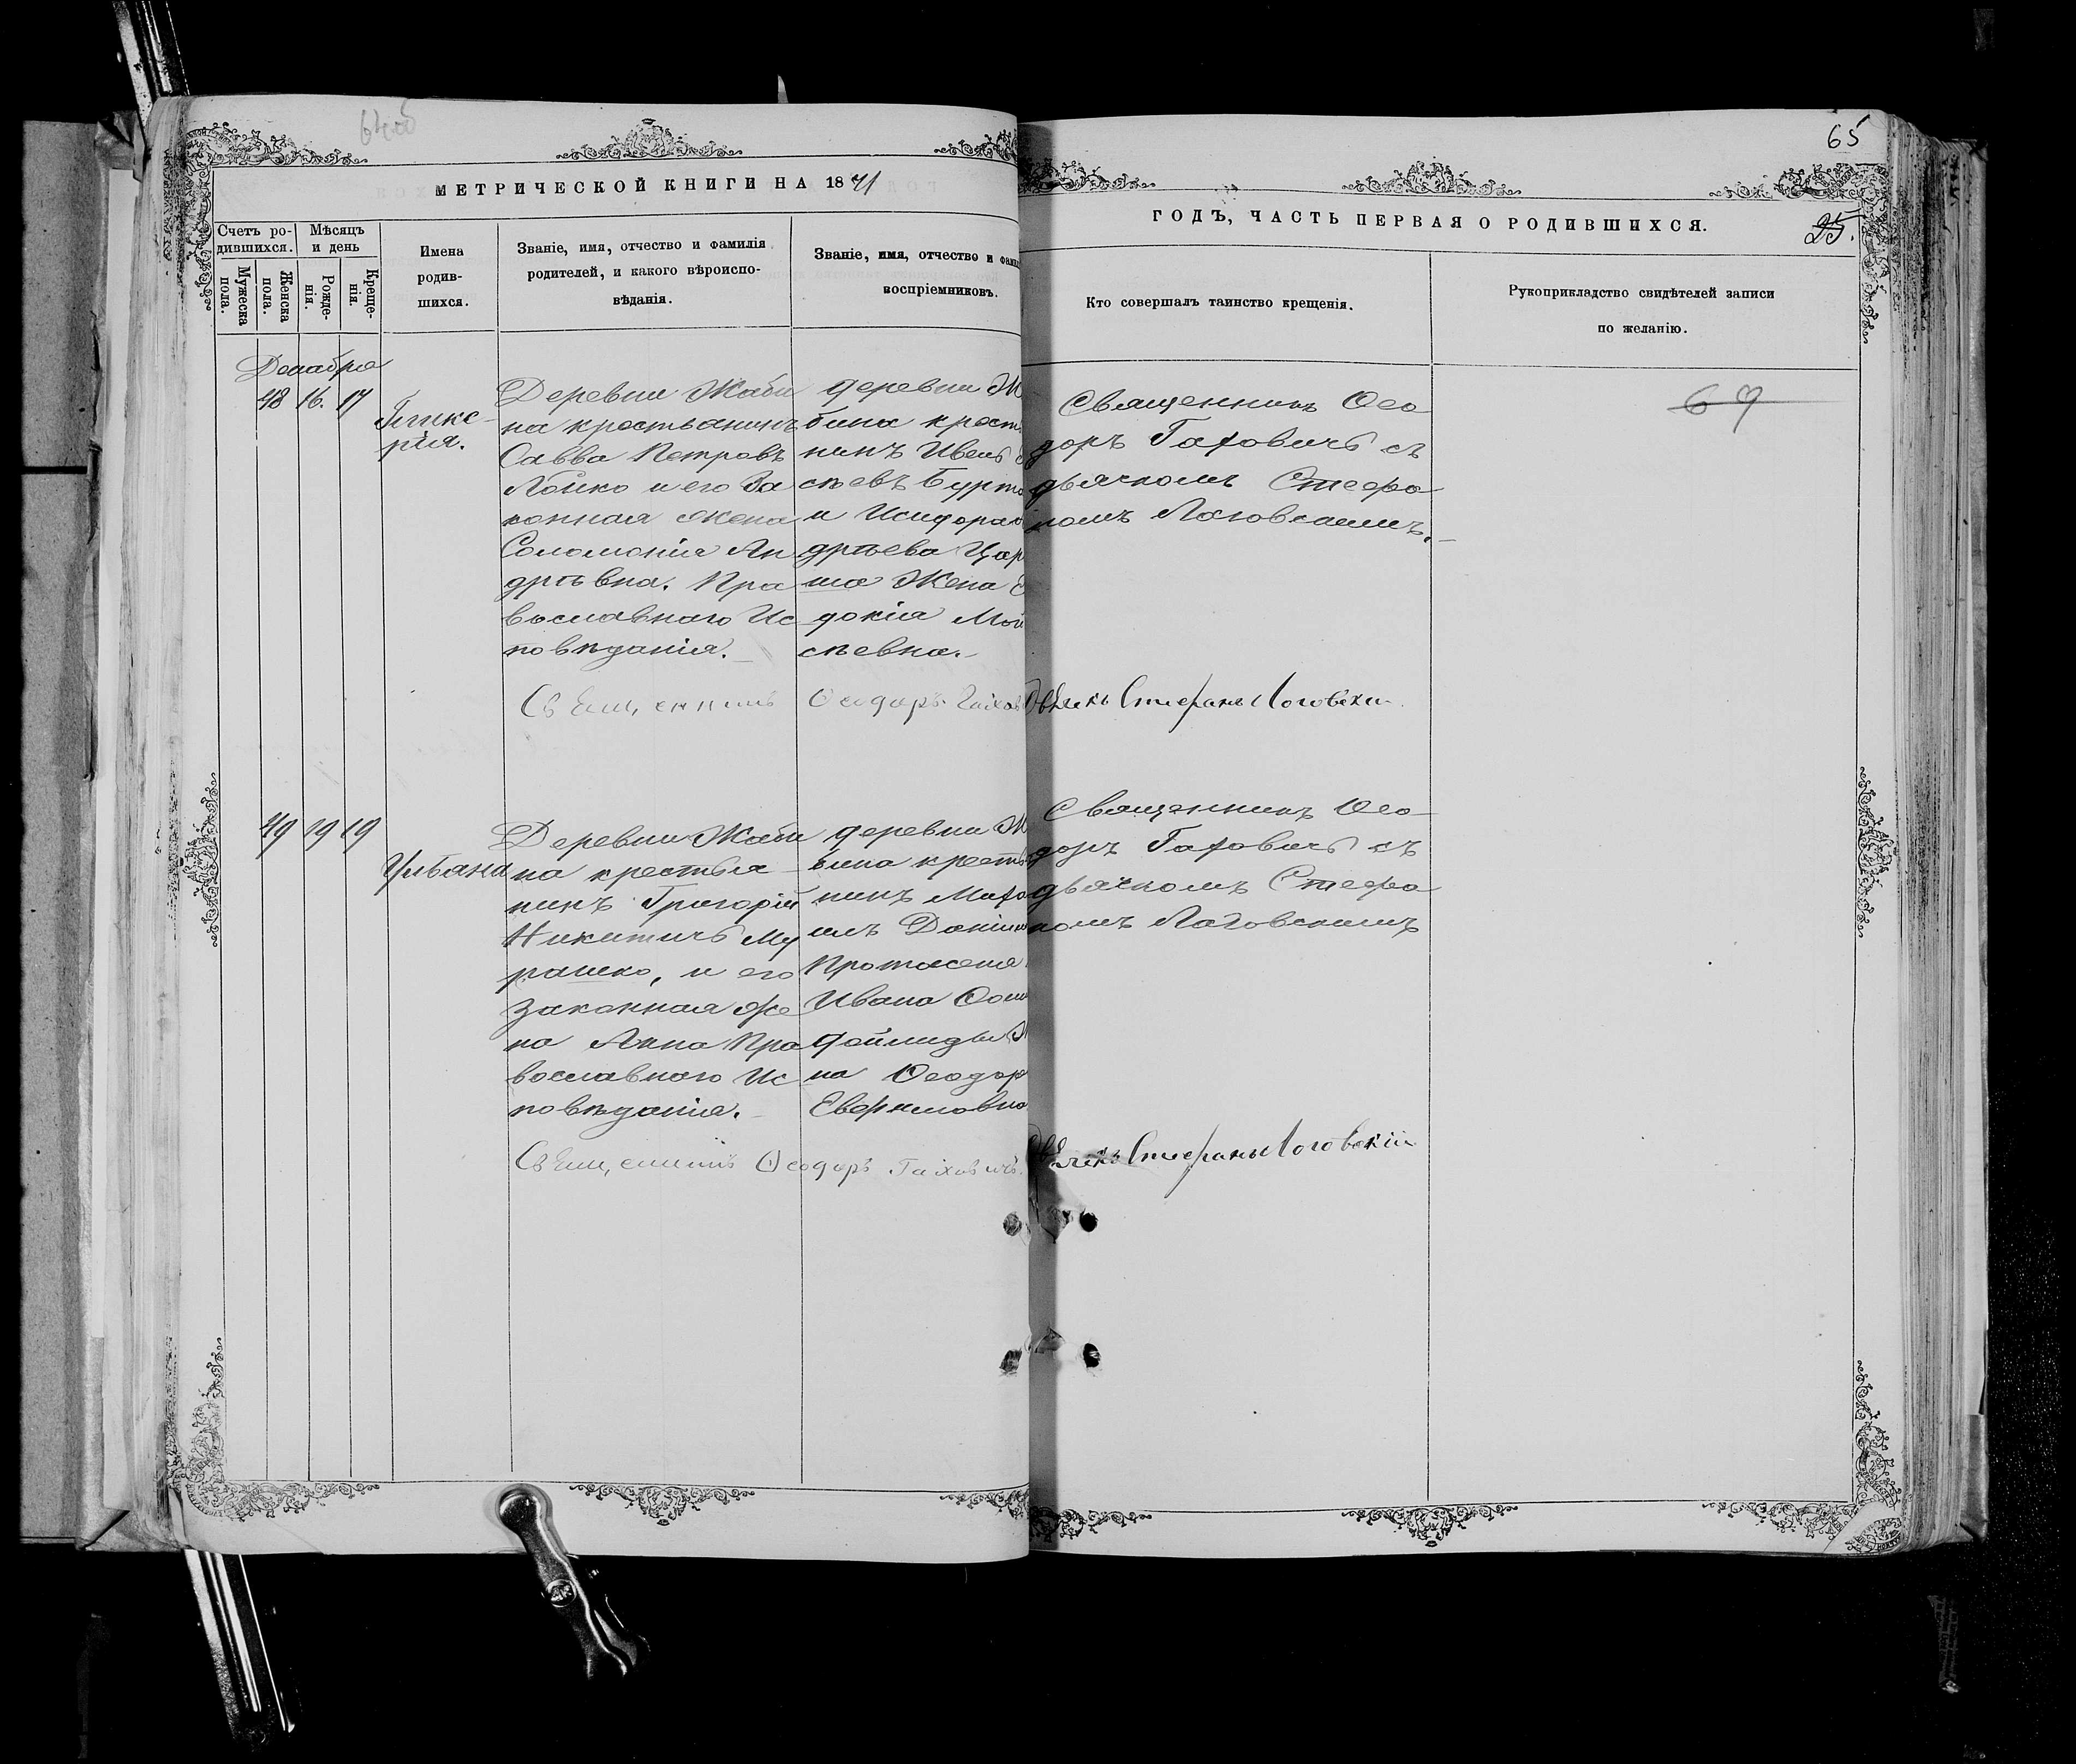 65
МЕТРИЧЕСКОЙ КНИГИ НА 1871
ГОДЪ, ЧАСТЬ ПЕРВАЯ О РОДИВШИХСЯ.
25.
Счетъ ро-
дившихся.
Мужеска
пола.
Женска
пола.
Мѣсяцъ
и день
Рожде-
нія.
Креще-
нія.
Имена
родив-
шихся.
Званіе, имя, отчество и фамилія
родителей, и какого вѣроиспо-
вѣданія.
Званіе, имя, отчество и фами
воспріемниковъ.
Кто совершалъ таинство крещенія.
Рукоприкладство свидѣтелей записи
по желанію.
Декабря
48 16. 17
Глике-
рія.
Деревни Жаби
на крестьянинъ
Савва Петровъ
Лойко и его За
конная жена
Соломонія Ан
дрѣевна. Пра
вославнаго Ис
повѣданія.
деревни Ж
бина крест
нинъ
сѣевъ
и
дрѣева
ша Жена
докія Мои
сѣевна.
Священникъ Ѳео
доръ Гахович съ
дьячкомъ Стефа
номъ Логовскимъ.
67
Священникъ Ѳеодоръ Гахов
Дьячекъ Стефанъ Логовскій
49 19 19
Ульяна
Деревни Жаби
на крестья
нинъ Григорій
Никитичъ Му
рашко, и его
законная Же
на Анна Пра
вославнаго Ис
повѣданія.
деревни Ж
бина крестья
нинъ Миха
илъ Даніил
Протасеня
Ивана

на Ѳеодор
Священникъ Ѳео
доръ Гахович съ
дьячкомъ Стефа
номъ Логовскимъ
Священникъ Ѳеодоръ Гаховичъ.
Дьячекъ Стефанъ Логовскій